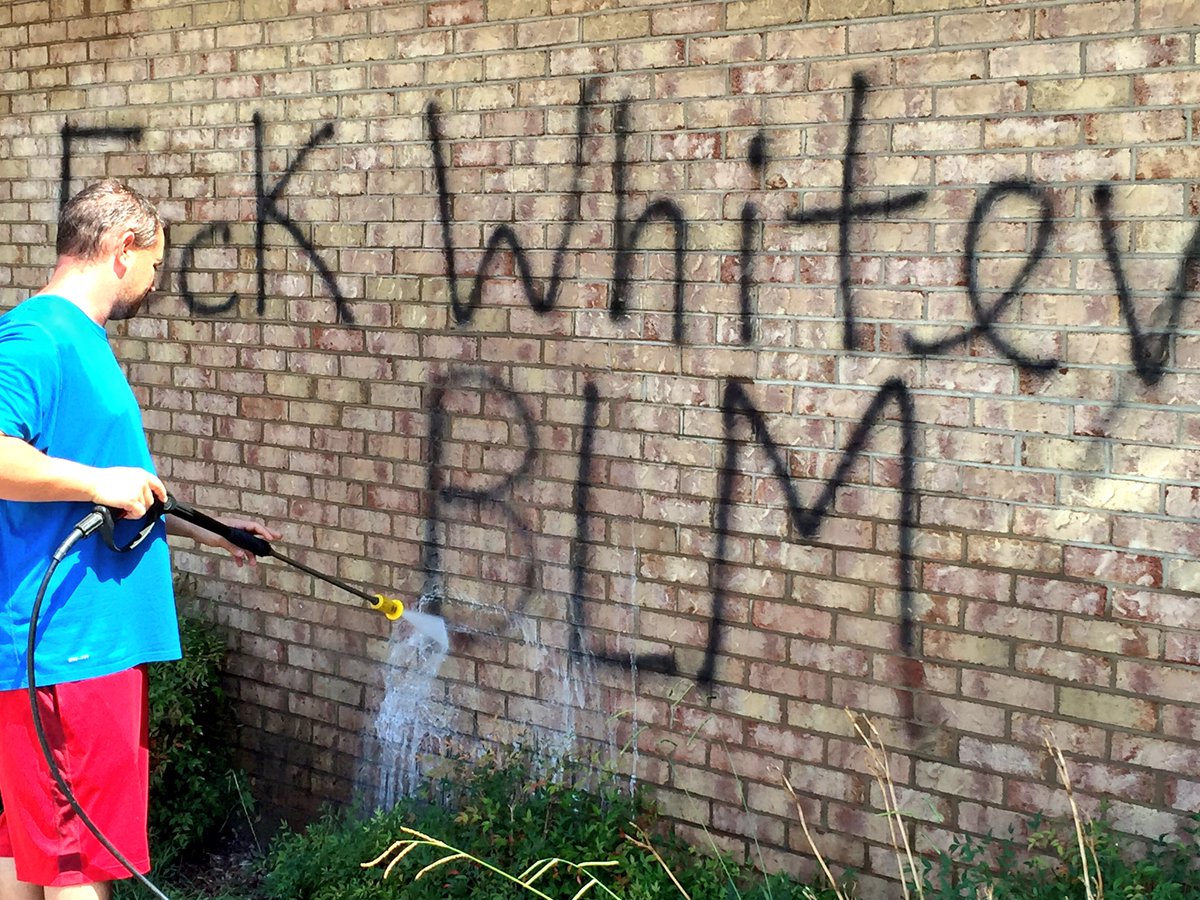 Fuck Whitey
BLM